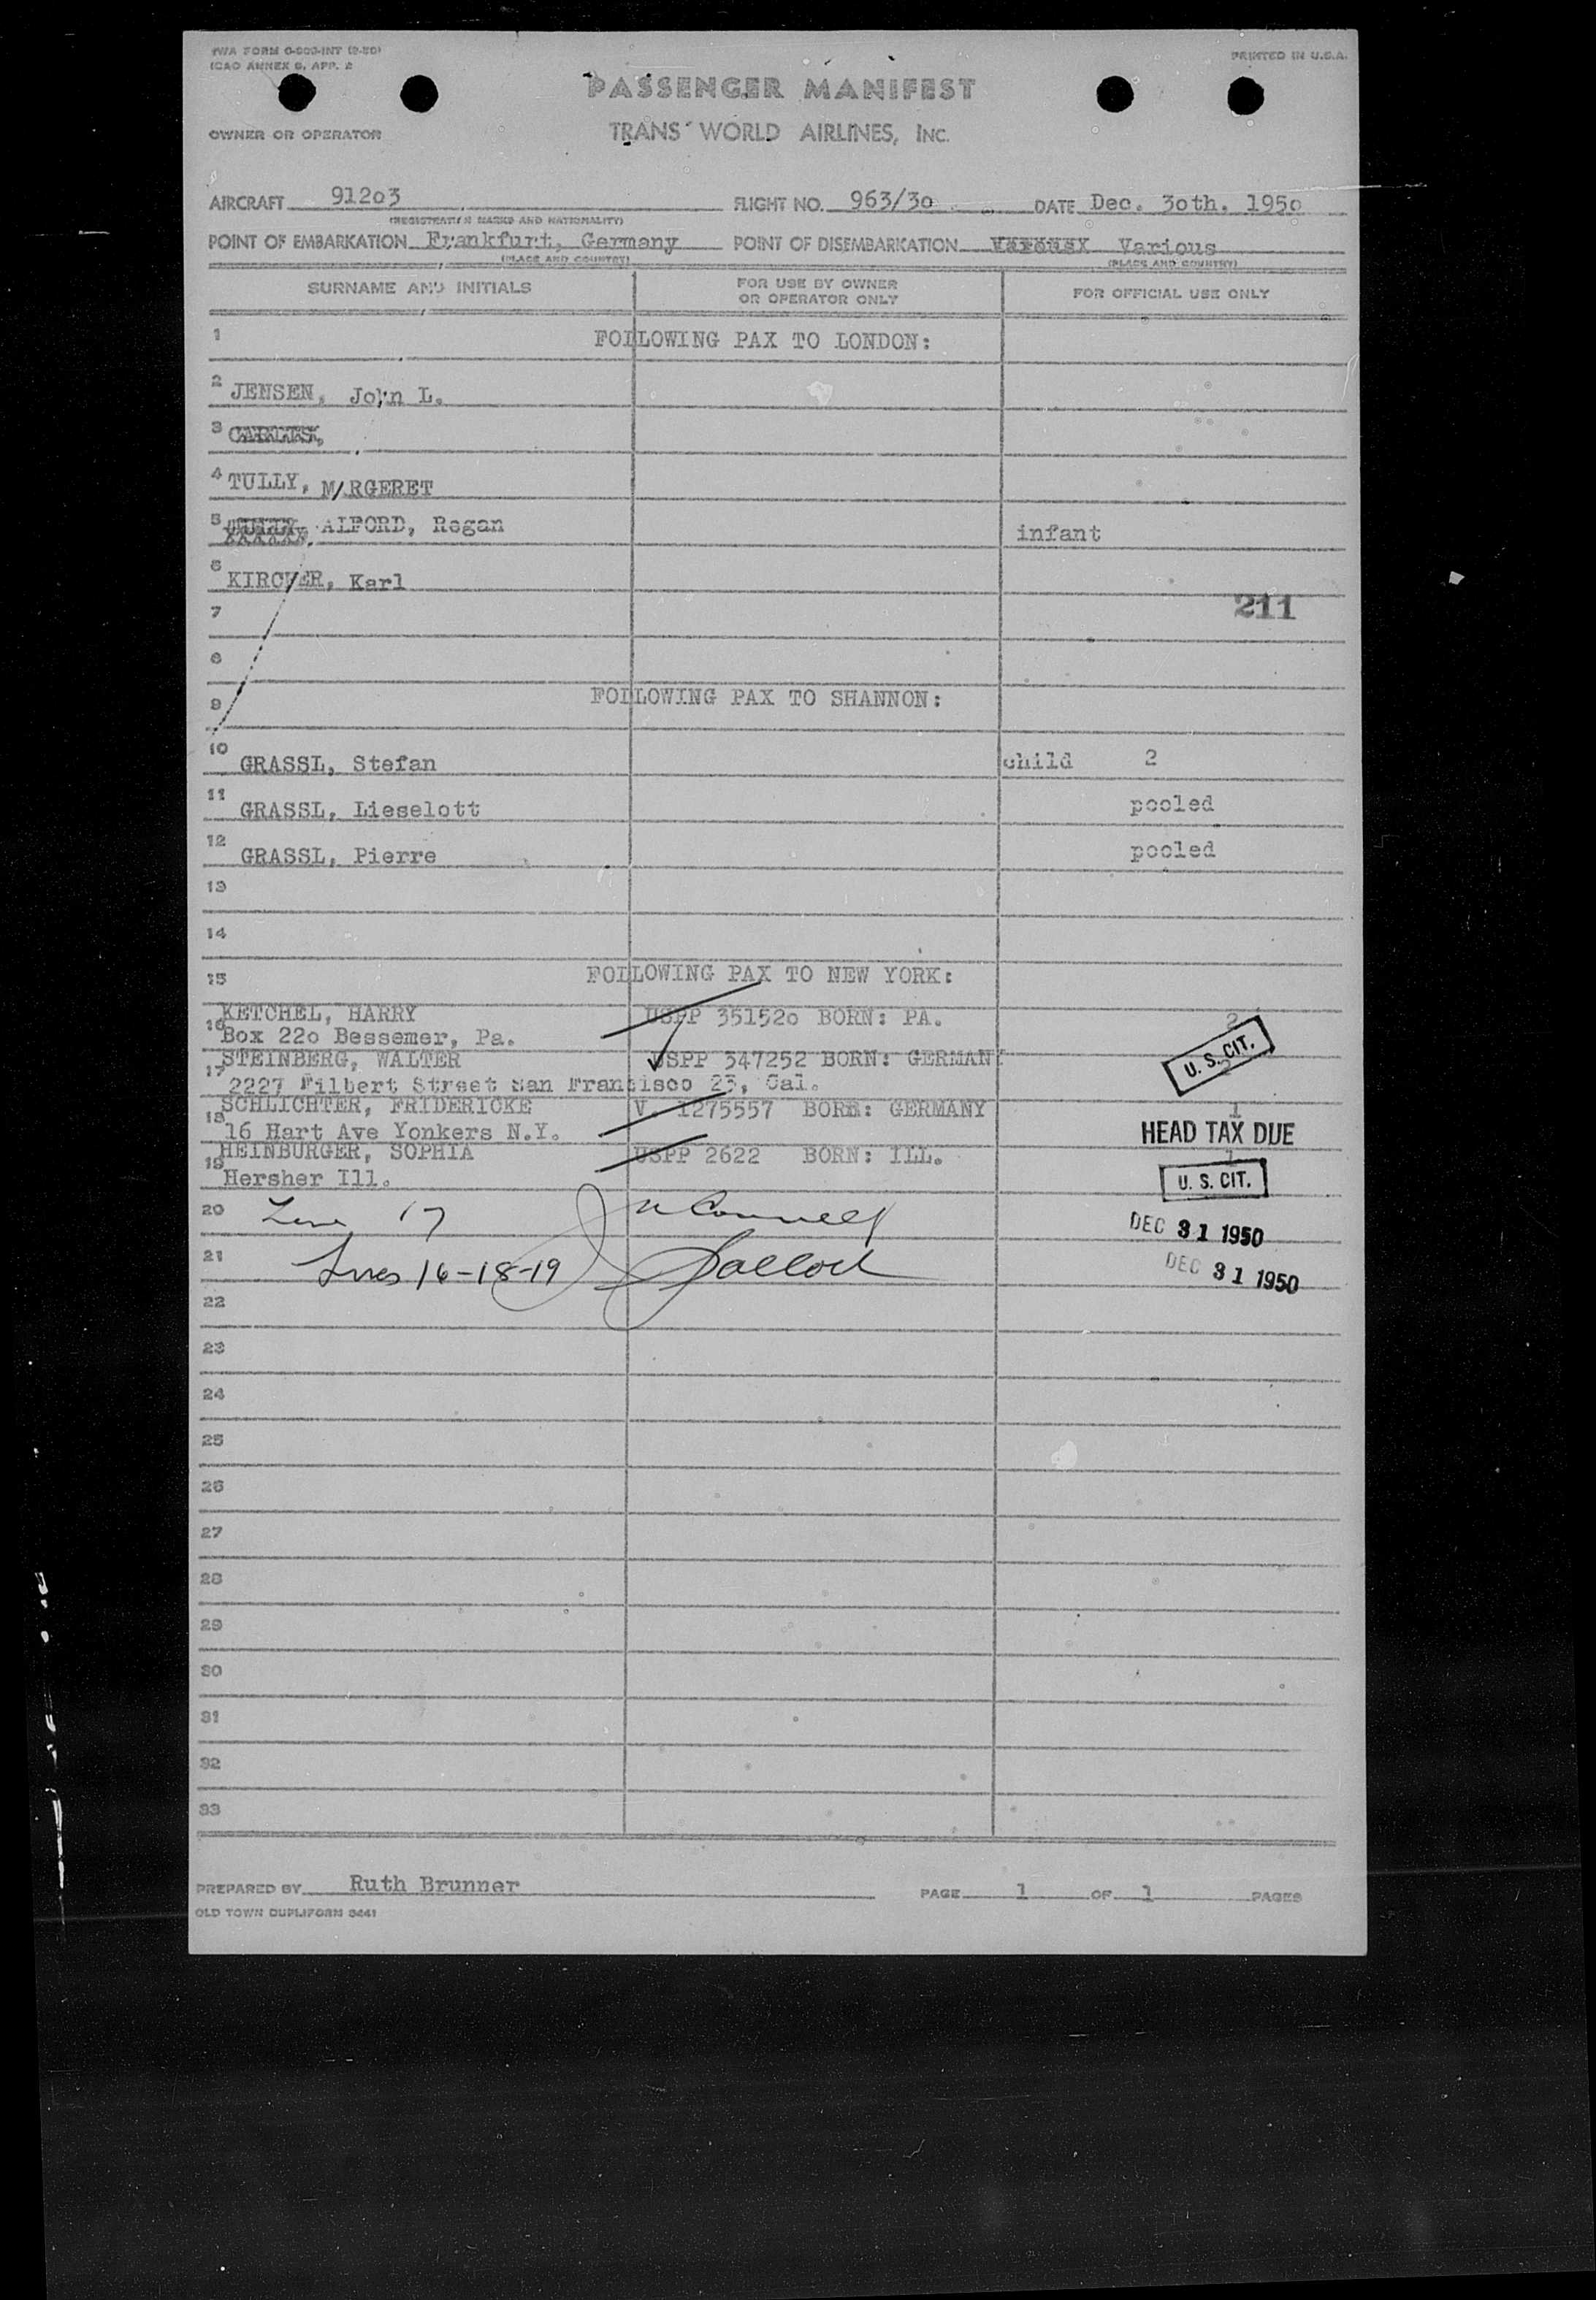 TWA FORM O-900-INT (9-50)
ICAO ANNEX 9, APP. 2
PRINTED IN U.S.A.
PASSENGER MANIFEST
OWNER OR OPERATOR
TRANS WORLD AIRLINES, INC.
AIRCRAFT 912o3 FLIGHT NO. 963/3o DATE Dec. 3oth. 195o
(REGISTRATION MARKS AND NATIONALITY)
POINT OF EMBARKATION Frankfurt, Germany POINT OF DISEMBARKATION Various
(PLACE AND COUNTRY) (PLACE AND COUNTRY)
SURNAME AND INITIALS FOR USE BY OWNER OR OPERATOR ONLY FOR OFFICIAL USE ONLY
1 FOLLOWING PAX TO LONDON:
2 JENSEN, John L.
3 CARLES,
4 TULLY, MARGERET
5 ALFORD, Regan infant
6 KIRCHER, Karl
7 211
8
9 FOLLOWING PAX TO SHANNON:
10 GRASSL, Stefan child 2
11 GRASSL, Lieselott pooled
12 GRASSL, Pierre pooled
13
14
15 FOLLOWING PAX TO NEW YORK:
16 KETCHEL, HARRY USPP 35152o BORN: PA. 2
Box 22o Bessemer, Pa. U. S. CIT.
17 STEINBERG, WALTER USPP 347252 BORN: GERMANY 2
2227 Filbert Street San Francisco 23, Cal.
18 SCHLICHTER, FRIDERICKE V. 1275557 BORN: GERMANY 1
16 Hart Ave Yonkers N.Y. HEAD TAX DUE
19 HEINBURGER, SOPHIA USPP 2622 BORN: ILL. 1
Hersher Ill. U. S. CIT.
20 Line 17 DEC 31 1950
21 Lines 16-18-19 DEC 31 1950
22
23
24
25
26
27
28
29
30
31
32
33
PREPARED BY Ruth Brunner PAGE 1 OF 1 PAGES
OLD TOWN DUPLIFORM 5441